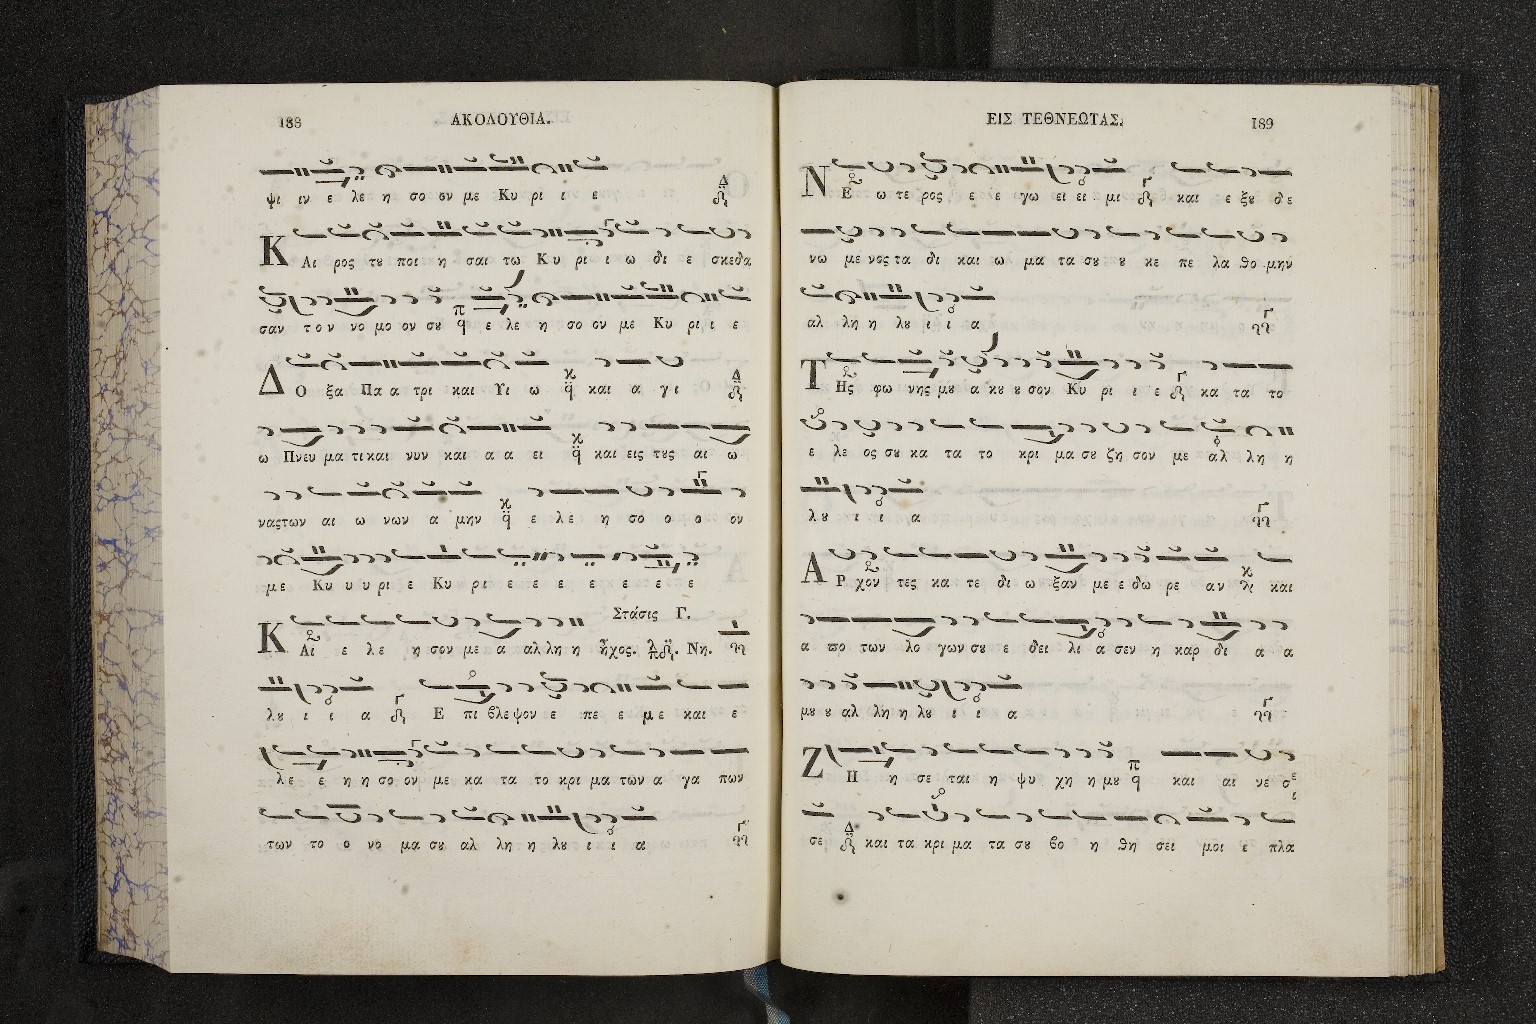 188
ΑΚΟΛΟΥΘΙΑ.
ψι ιν ε λε η σο ον με Κυ ρι ι ε
ΚΑι ρος τȣ ποι η σαι τω Κυ ρι ι ω δι ε σκεδα
σαν τον νο μο ον σȣ ε λε η σο ον με Κυ ρι ι ε
ΔΟ ξα Πα α τρι και Υι ω και α γι
ω Πνευ μα τι και νυν και α α ει και εις τȣς αι ω
νας των αι ω νων α μην ε λε η σο ο ο ον
με Κυ υ υ ρι ε Κυ ρι ε ε ε ε ε ε ε
Στάσις Γ.
ΚΑι ε λε η σον με α αλ λη η ἦχος. Νη.
λȣ ι ι α Ε πι βλεψον ε πε ε με και ε
λε ε η η σο ον με κα τα το κρι μα των α γα πων
των το ο νο μα σȣ αλ λη η λȣ ι ι α
ΕΙΣ ΤΕΘΝΕΩΤΑΣ.
189
ΝΕ ω τε ρος ε ε γω ει ει μι και ε ξȣ δε
νω με νος τα δι και ω μα τα σȣ ȣ κε πε λα θο μην
αλ λη η λȣ ι ι α
ΤΗς φω νης μȣ α κȣ ȣ σον Κυ ρι ι ε κα τα το
ε λε ος σȣ κα τα το κρι μα σȣ ζη σον με αλ λη η
λȣ ι ι α
ΑΡ χον τες κα τε δι ω ξαν με ε δω ρε αν και
α πο των λο γων σȣ ε δει λι α σεν η καρ δι α α
μȣ ȣ αλ λη η λȣ ι ι α
ΖΗ η σε ται η ψυ χη η μȣ και αι νε σε ι
σε και τα κρι μα τα σȣ βο η θη σει μοι ε πλα